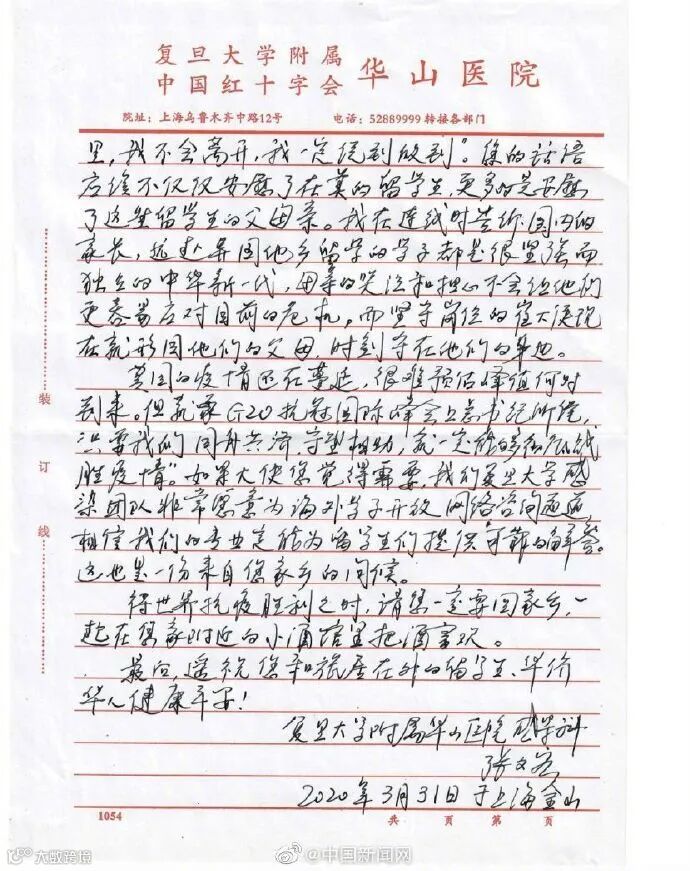 复旦大学附属
中国红十字会 华山医院
院址：上海乌鲁木齐中路12号 电话：52889999 转接各部门
里，我不会离开，我一定统到做到”。您的话语
应该不仅仅安慰了在英的留学生，更多的是安慰
了这些留学生的父母亲。我在连线时告诉国内的
家长，远赴异国他乡留学的学子都是很坚强而
独立的中华新一代，母亲的哭泣和担心不会让他们
更容易应对目前的危机，而坚守岗位的崔大使现
在就形同他们的父母，时刻守在他们的身边。
英国的疫情还在蔓延，很难预估峰值何时
到来。但就象G20抗冠国际峰会上总书记所说，
只要我们同舟共济，守望相助，就一定能够彻底战
胜疫情”。如果大使您觉得需要，我们复旦大学感
染团队非常愿意为海外学子开放网络咨询通道，
相信我们的专业定能为留学生们提供可靠的解答。
这也是一份来自您家乡的问候。
待世界抗疫胜利之时，请您一定要回家乡，一
起在您家附近的小酒馆里把酒言欢。
最后，遥祝您和旅居在外的留学生、华侨
华人健康平安！
复旦大学附属华山医院感染科
张文宏
2020年3月31日于上海金山
装
订
线
1054 共 页 第 页
大数跨境
@中国新闻网